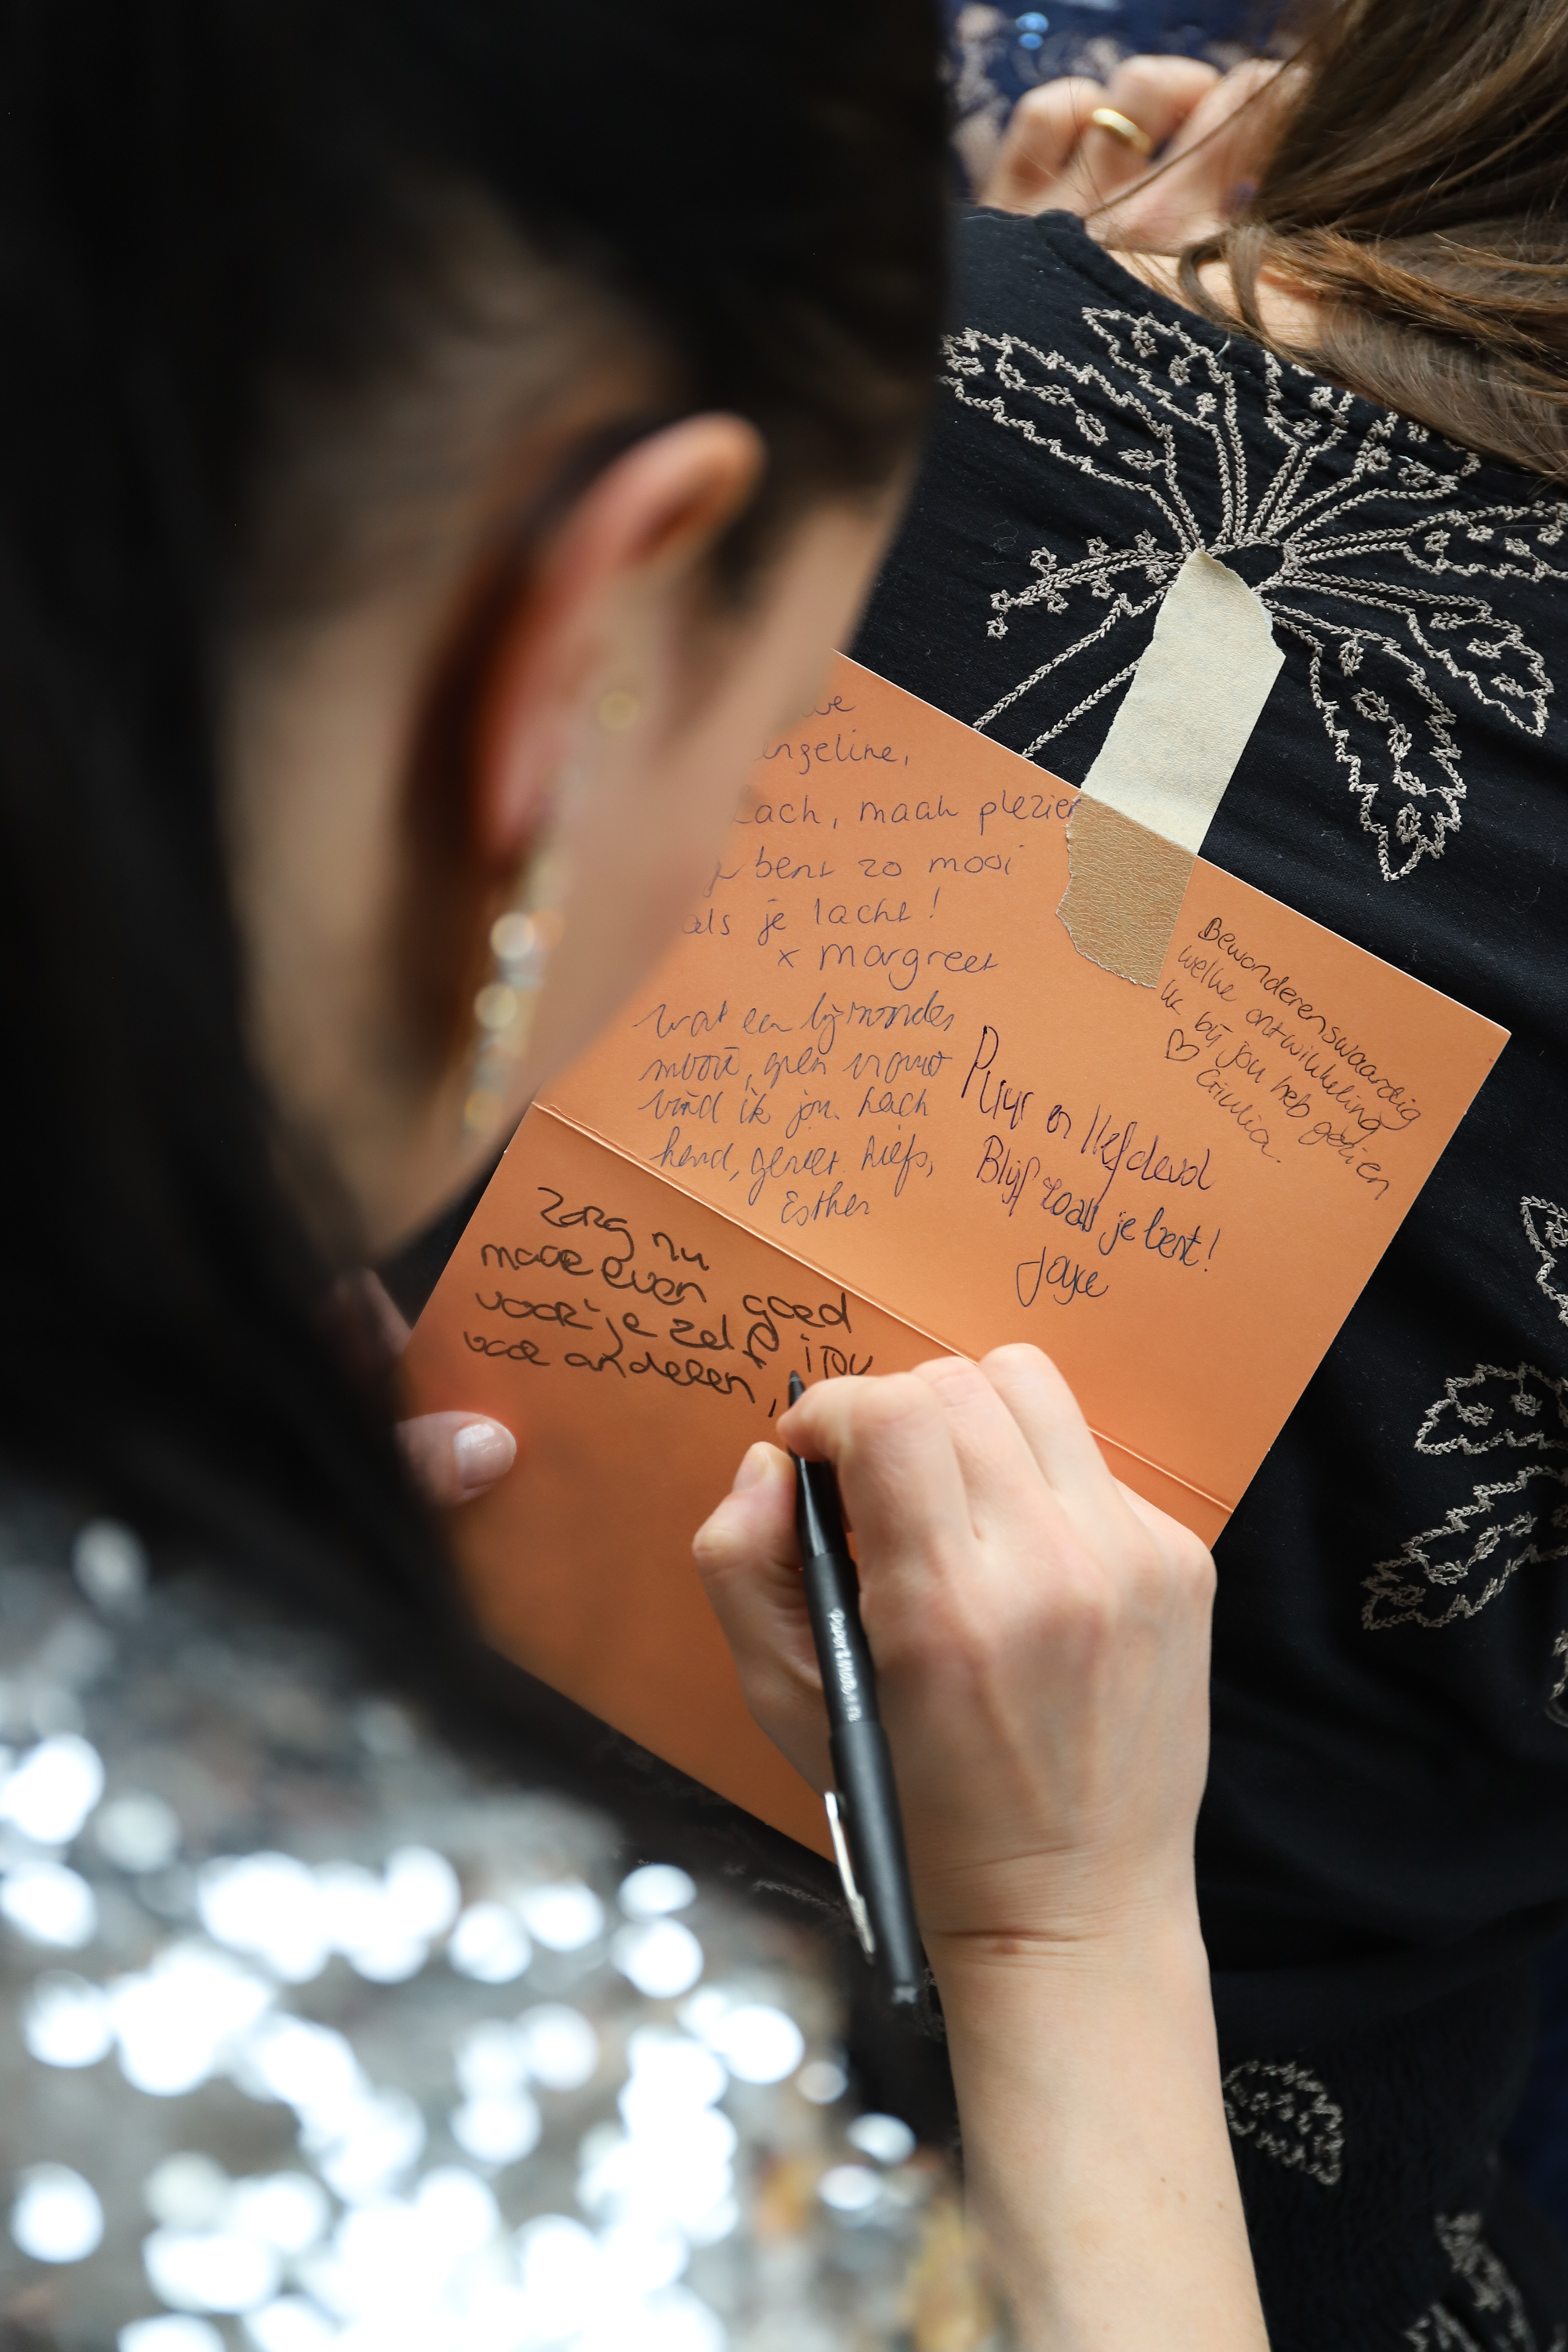 ngeline,
Lach, maak plezier
je bent zo mooi
als je lacht!
x margreet
Wat een bijzonder
mooie, open vrouw
vind ik jou. Lach
hard, geniet. Liefs,
Esther
Puur en liefdevol
Blijf zoals je bent!
Joyce
Bewonderenswaardig
welke ontwikkeling
ik bij jou heb gezien
♡ Giulia.
Zorg nu
maar even goed
voor je zelf i.p.v
voor anderen,
Paper Mate